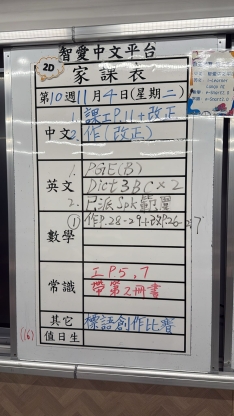 智愛中文平台
2D
家課表
第10週11月4日(星期二)
中文
1. 課工P.11+改正
2. 作(改正)
英文
1. PGE(B)
Dict 3 B C × 2
2. 已派Spk
數學
① 作P.28-29+改P.26-27
常識
工P.5,7
帶第2冊書
其它
標語創作比賽
(16)
值日生